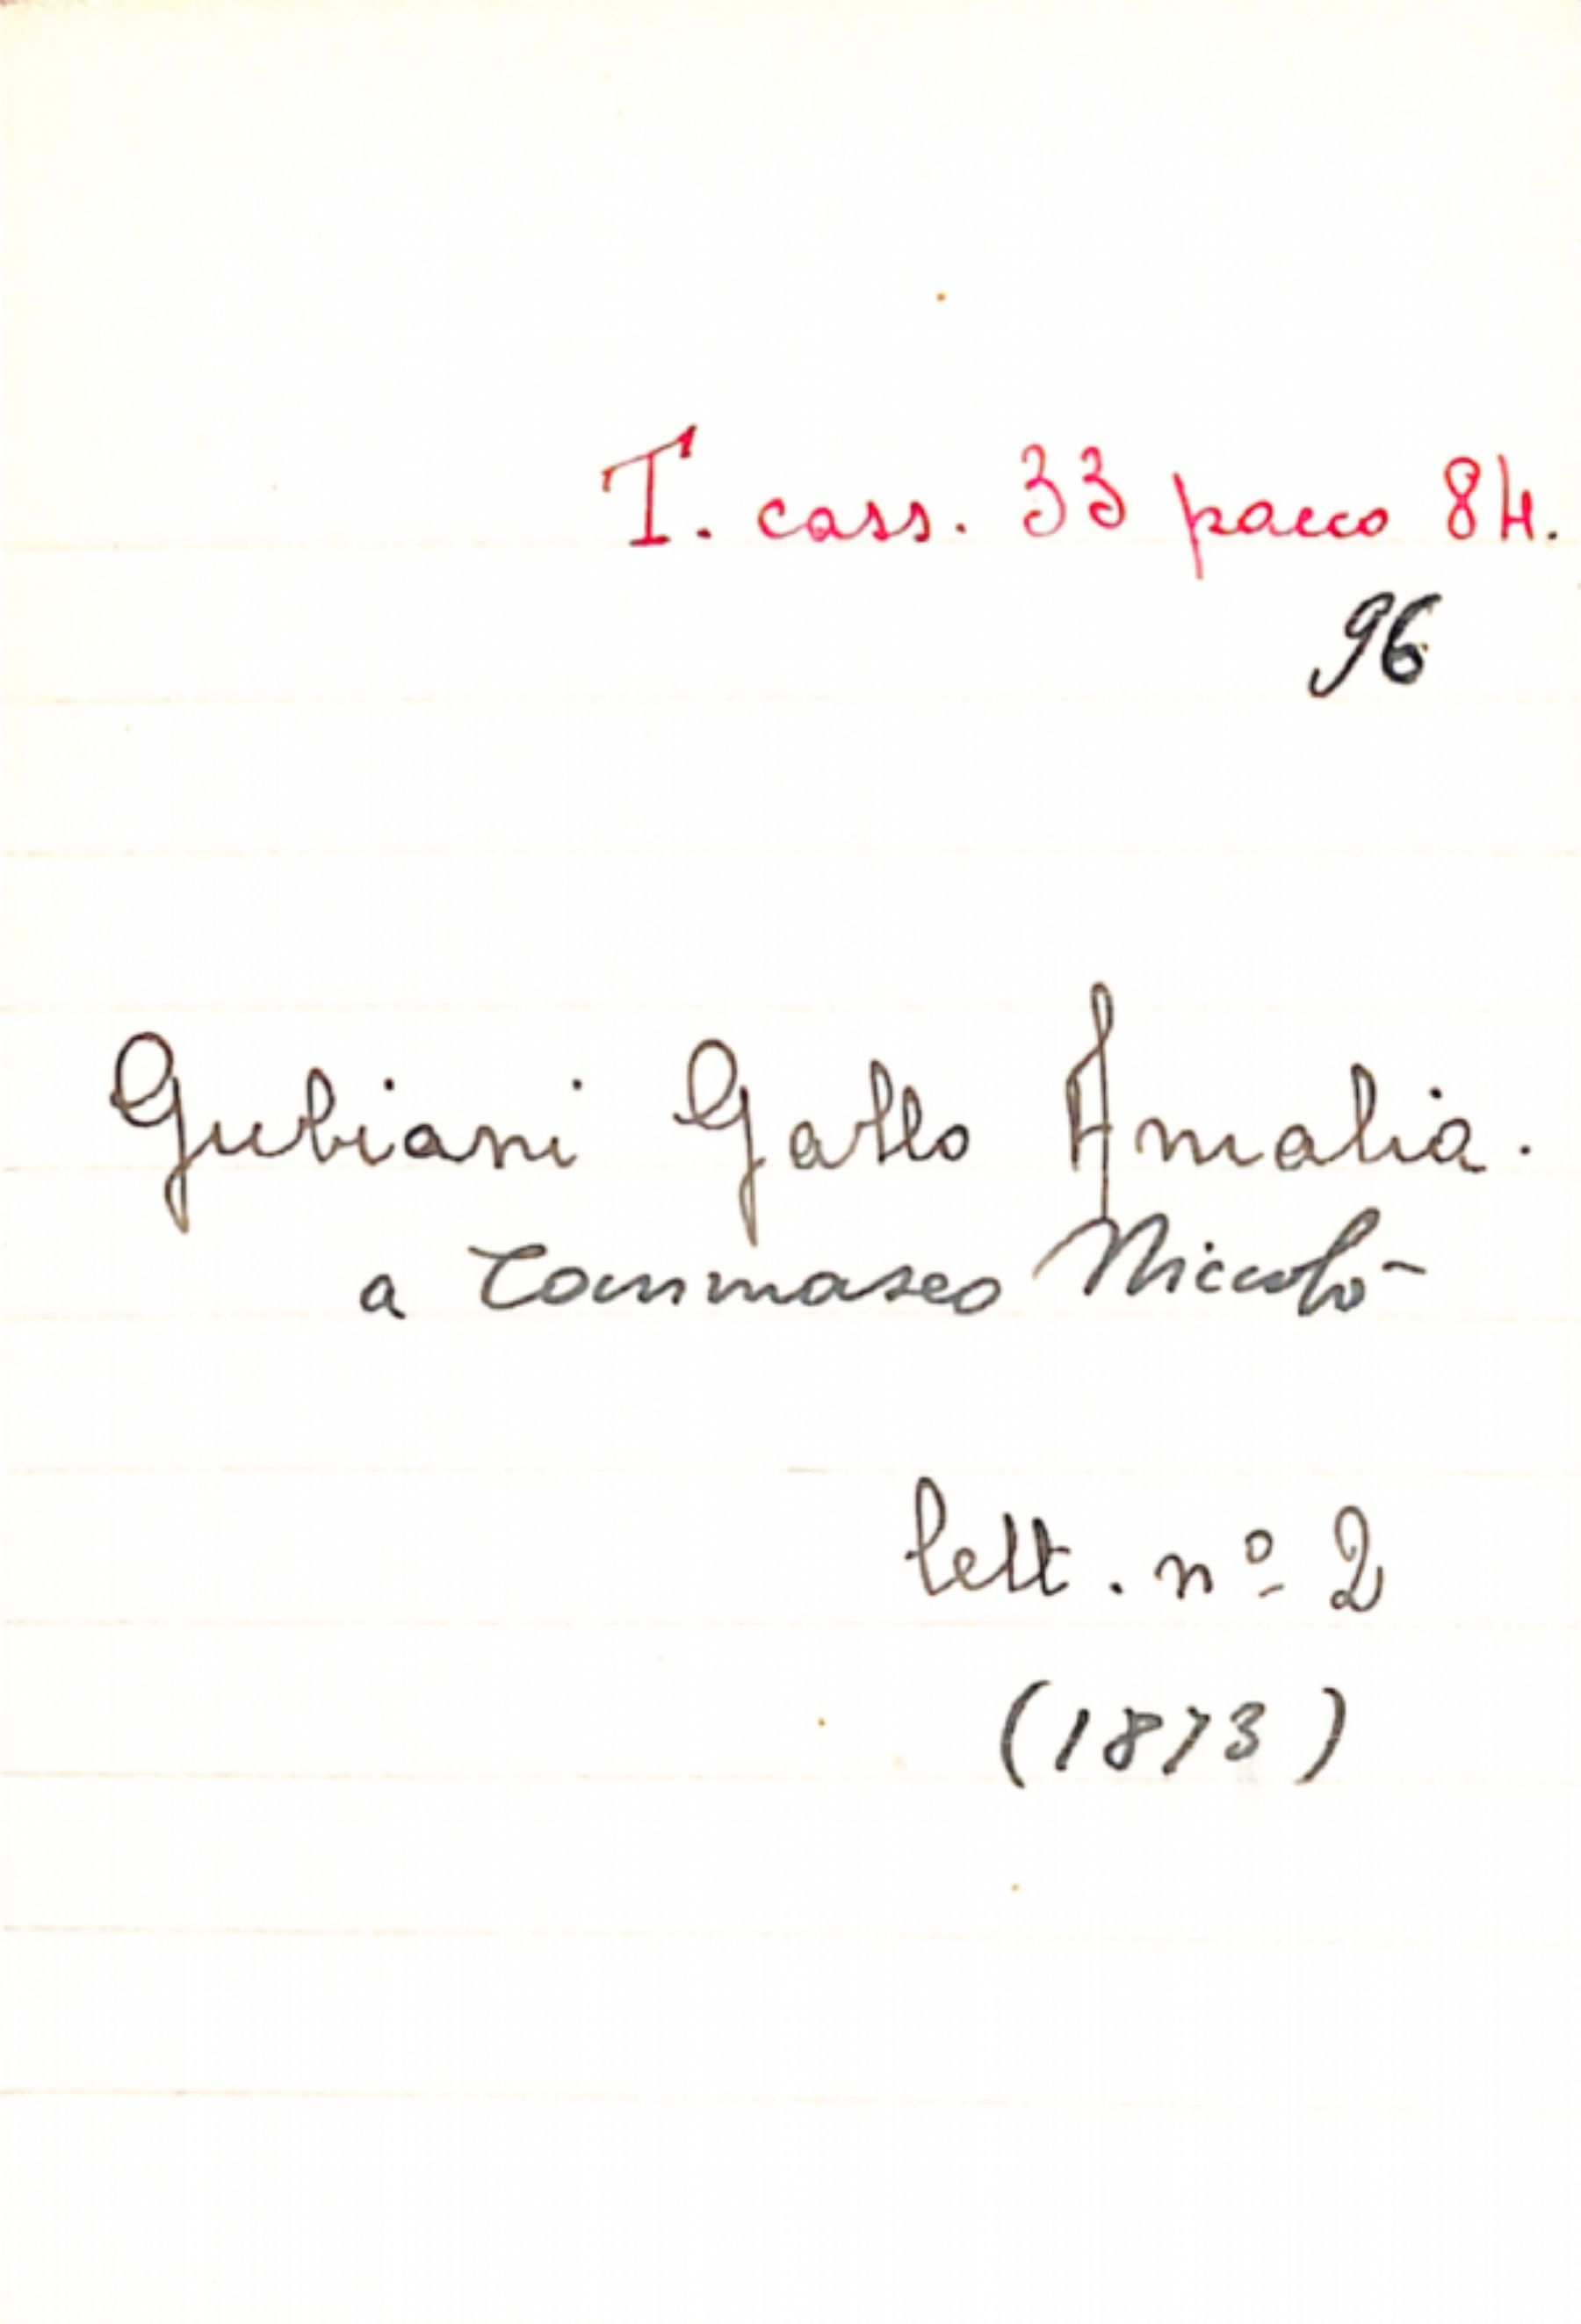 T. cass. 33 pacco 84.
96
Gubiani Gallo Amalia.
a Tommaseo Niccolò
lett. nº 2
(1873)